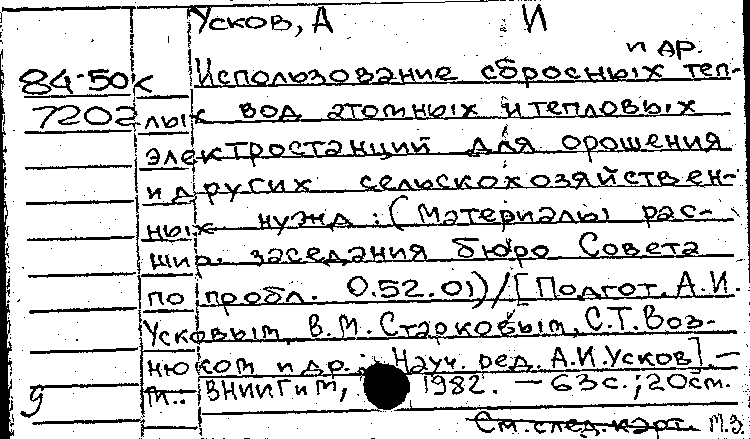 Усков, А И
и др.
84-50к Использование сбросных теп-
7202 лых вод атомных и тепловых
электростанций для орошения
и других сельскохозяйствен-
ных нужд: (Материалы рас-
шир. заседания бюро Совета
по пробл. 0.52.01)/[Подгот. А.И.
Усковым, В.М. Старковым, С.Т. Воз-
нюком и др.; Науч. ред. А.И. Усков].—
М.: ВНИИГиМ, 1982. — 63с.; 20см.
9 См. след. карт. М.З.